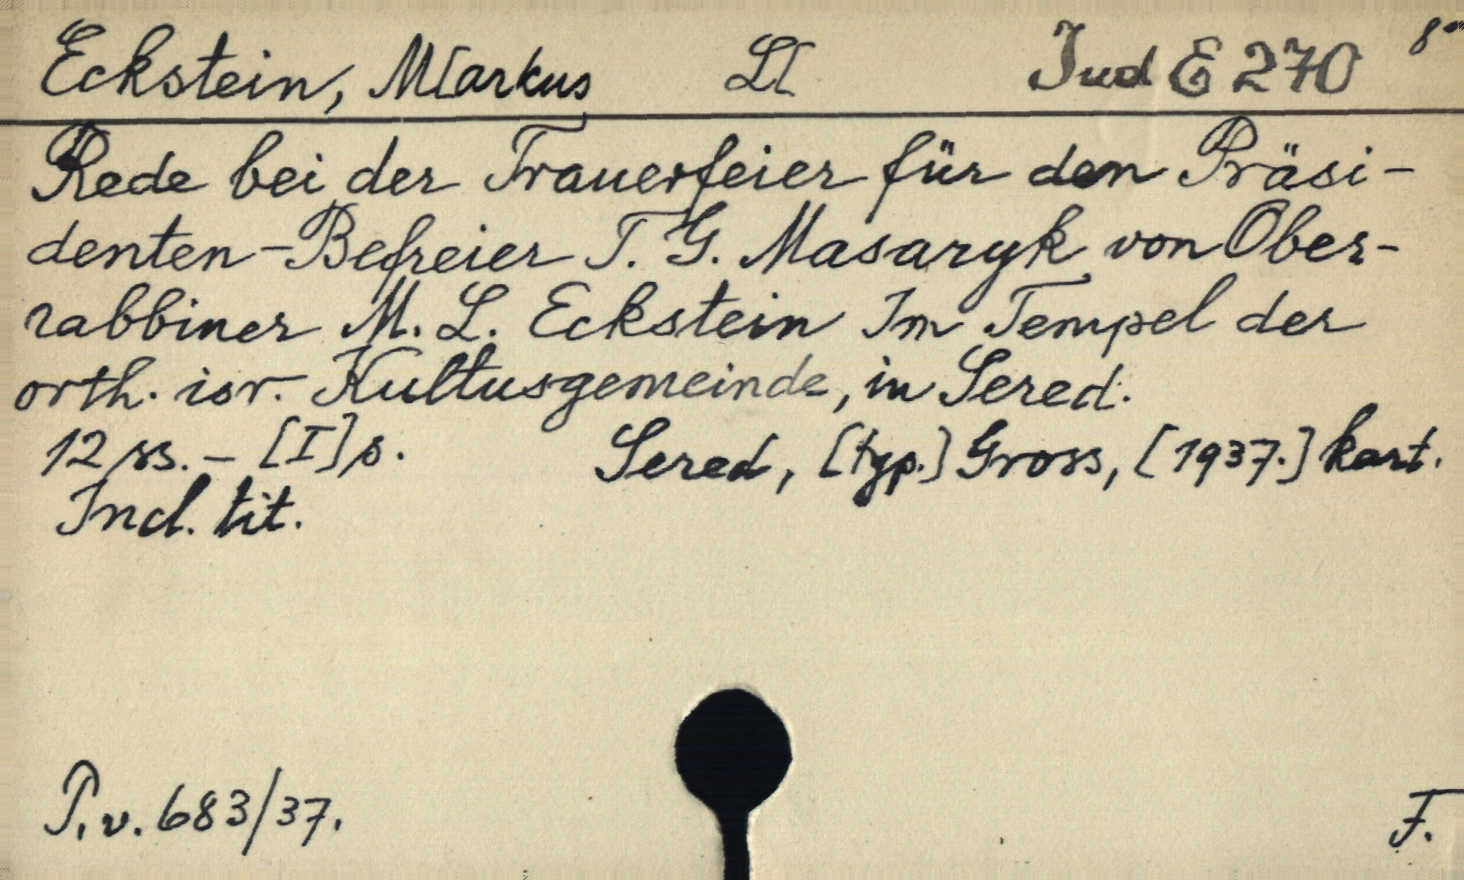 Eckstein, M[arkus L[ Jud E 270 8°
Rede bei der Trauerfeier für den Präsi-
denten-Befreier T. G. Masaryk von Ober-
rabbiner M. L. Eckstein Im Tempel der
orth. isr. Kultusgemeinde, in Sered.
12 ss. - [I] s. Sered, [typ.] Gross, [1937.] kart.
Incl. tit.
P.v. 683/37. F.